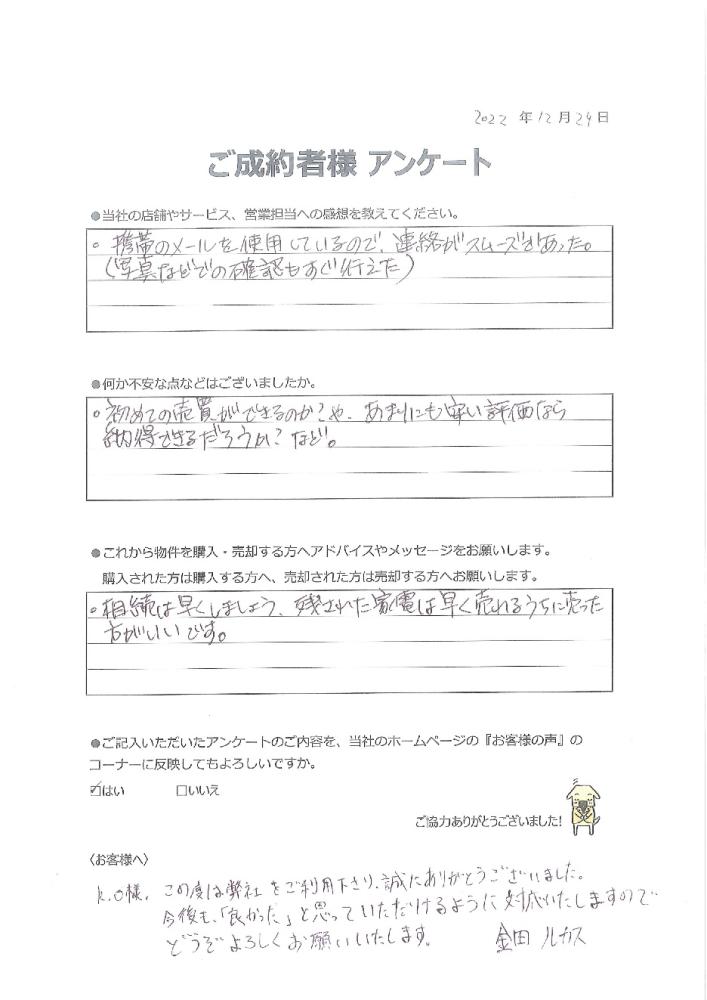 2022 年 12 月 29 日
ご成約者様 アンケート
●当社の店舗やサービス、営業担当への感想を教えてください。
・携帯のメールを使用しているので、連絡がスムーズであった。
(写真などでの確認もすぐ行えた)
●何か不安な点などはございましたか。
・初めての売買ができるのか?や、あまりにも安い評価なら
納得できるだろうか?など。
●これから物件を購入・売却する方へアドバイスやメッセージをお願いします。
購入された方は購入する方へ、売却された方は売却する方へお願いします。
・相続は早くしましょう、残された家電は早く売れるうちに売った
方がいいです。
●ご記入いただいたアンケートのご内容を、当社のホームページの『お客様の声』の
コーナーに反映してもよろしいですか。
☑はい □いいえ
ご協力ありがとうございました!
〈お客様へ〉
k.O様, この度は弊社をご利用下さり、誠にありがとうございました。
今後も、「良かった」と思っていただけるように対応いたしますので
どうぞよろしくお願いいたします。 金田 ルカス